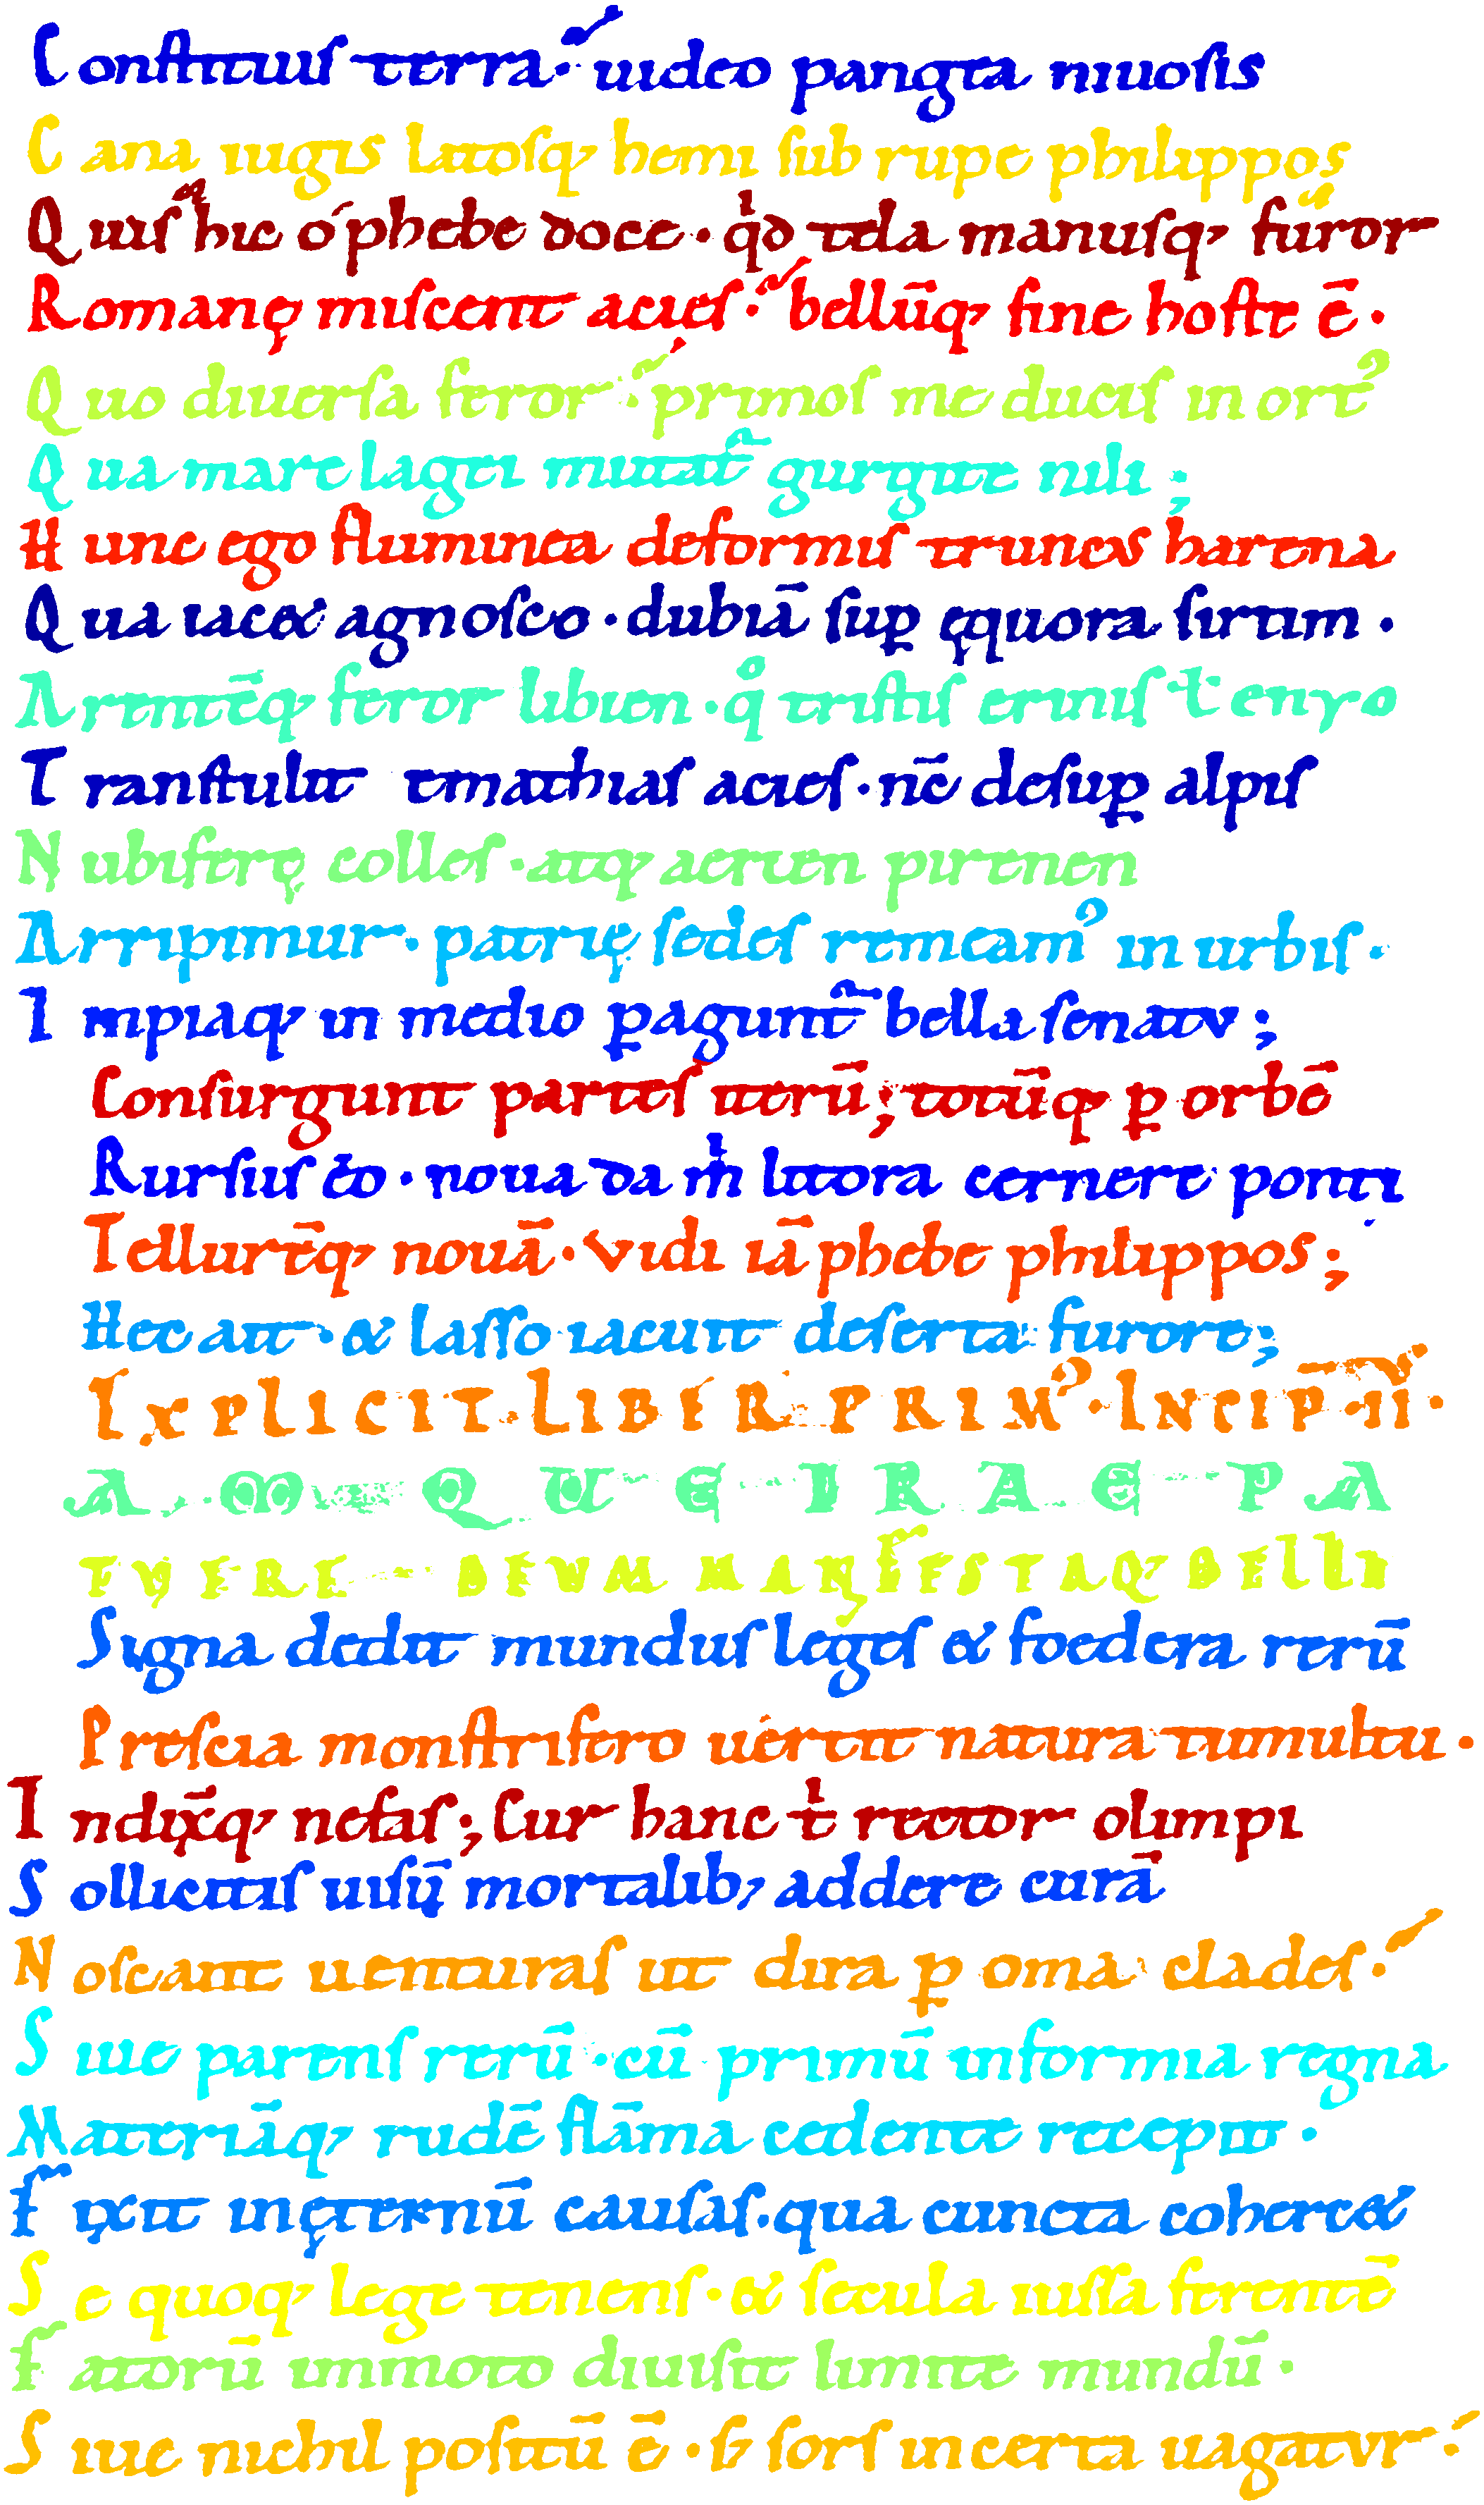 Constituis terra? uideo pangea niuosis
Cana iugis latosq; hemi sub rupe philippos
Quis hic o phebe doce · qd tela manusq; furor
Romanę miscent acies? bellūq; sine hoste ē ·
Quo diuersa feror? primos me ducis in ort⁹
Qua mare lagei mutat̄ gurgite nili ;
Hunc ego fluminea deformis truncus harena
Qua iacet agnosco · dubiā sup̱ ęquora sirtim ·
Arentēq; feror libien · qͦ tristis erinis · t̄ enyo
Transtulit emathias acies · nc̄ desup̱ alpis
Nubiferę colles · atq; aeriren pirenen
Arripimur · patrię sedes remeam⁹ in urbis ·
Impiaq; in medio p̱agunt̄ bella senatu ;
Consurgunt partes iterū ; totūq; p̱ orbē
Rursus eo · noua da m̄ litora cernere ponti
Tellurēq; nouā · vidi iā phebe philippos ;
Hec ait · & lasso iacuit deserta furore ;
EXPLICIT · LIBER · PRIM⁹ · INCIP̄ · II ·
IRAE PA
TVERE DEVM MANIFESTAQ; BELLI
Signa dedit mundus leges & foedera rerū
Prescia monstrifero uertit natura tumultu ·
Indix̄q; nefas ; Cur hanc t̄ rector olimpi
Sollicitas uisū mortalib; addere curā
Noscant uenturas ut dira p̱ omā clades ?
Siue parens rerū · cū primū informia regna
Materiāq; rudē flāma cedente recepit ·
Fixit inęternū causas · qua cuncta coherc&
Se quoq; lege tenens · & secula iussa ferentē
Fatorū immoto diuisit limite mundū ·
Siue nichil positū ē · s; sors incerta uagatvr ?